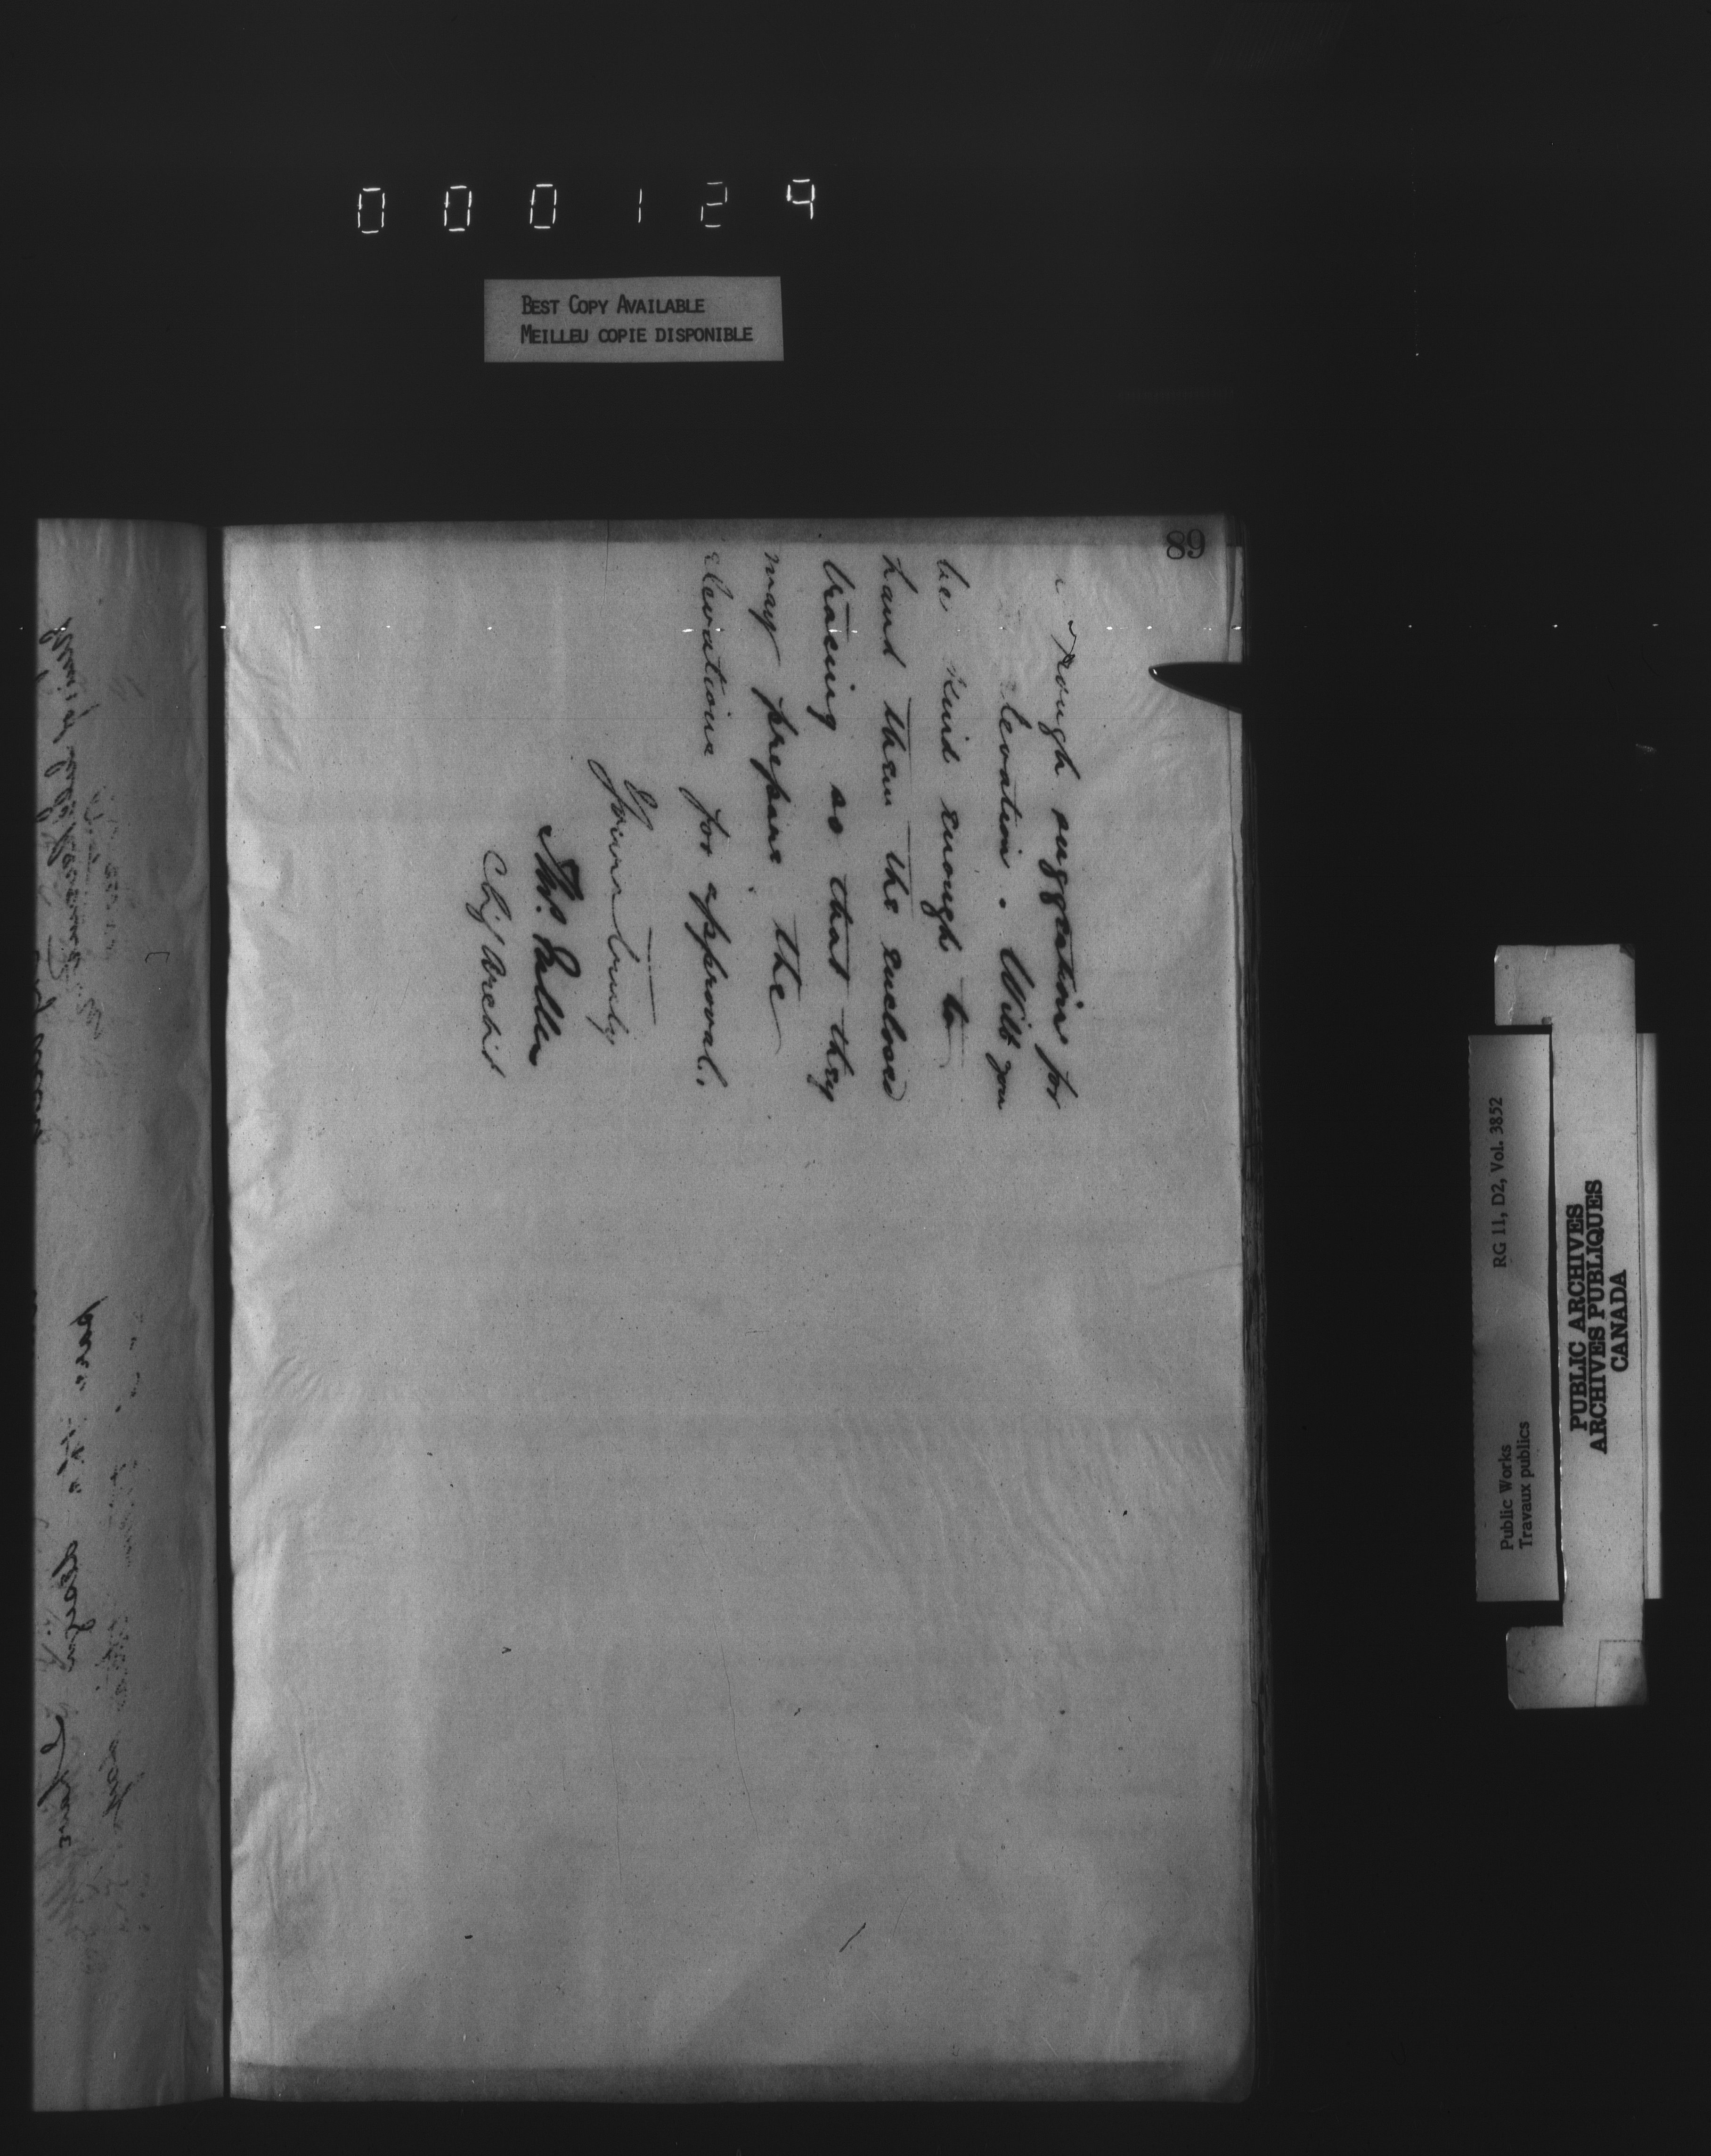 000129
BEST COPY AVAILABLE
MEILLEU COPIE DISPONIBLE
89
a rough suggestion for
elevation. Will you
be kind enough to
hand them the enclosed
tracing so that they
may prepare the
elevations for approval.
Yours truly
Thos. Fuller
Chf Archt
Public Works
Travaux publics
RG 11, D2, Vol. 3852
PUBLIC ARCHIVES
ARCHIVES PUBLIQUES
CANADA